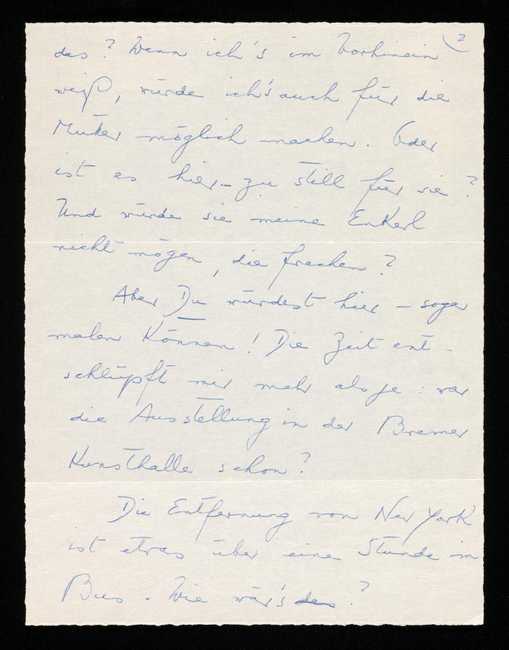 2
das? Wenn ich's im Vorhinein
weiß, würde ich's auch für die
Mutter möglich machen. Oder
ist es hier – zu still für sie?
Und würde sie meine Enkerl
nicht mögen, die frechen?
Aber Du würdest hier – sogar
malen können! Die Zeit ent-
schlüpft mir mehr als je: war
die Ausstellung in der Bremer
Kunsthalle schon?
Die Entfernung von New York
ist etwas über eine Stunde im
Bus. Wie wär's das?